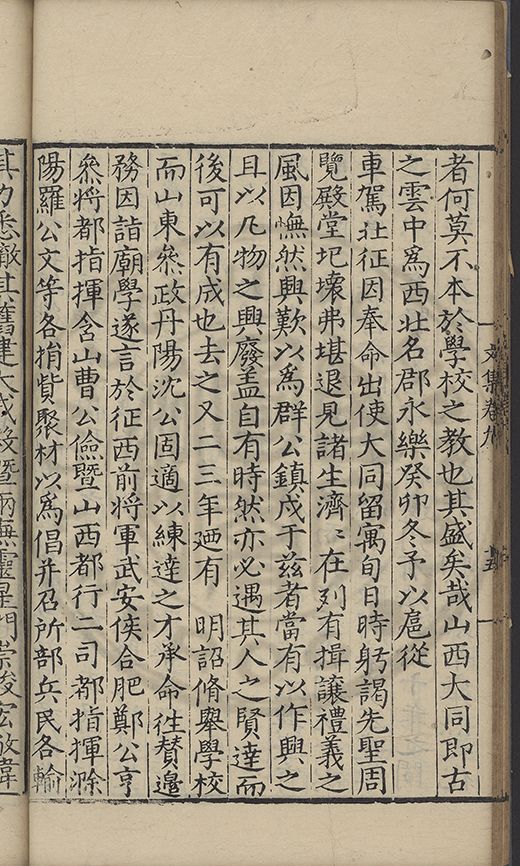 文集卷九
十五
者何莫不本於學校之教也其盛矣哉山西大同即古
之雲中爲西北名郡永樂癸卯冬予以扈從
車駕北征因奉命出使大同留寓旬日時躬謁先聖周
覽殿堂圮壞弗堪退見諸生濟〻在列有揖讓禮義之
風因憮然興歎以爲群公鎮戍于茲者當有以作興之
且以凡物之興廢盖自有時然亦必遇其人之賢達而
後可以有成也去之又二三年廼有 明詔脩舉學校
而山東叅政丹陽沈公固適以練達之才承命徃賛邊
務因詣廟學遂言於征西前將軍武安侯合肥鄭公亨
叅將都指揮含山曹公儉暨山西都行二司都指揮滁
陽羅公文等各捐貲聚材以爲倡并召所部兵民各輸
其力悉撤其舊建大成殿暨兩廡靈星門崇峻宏敞偉